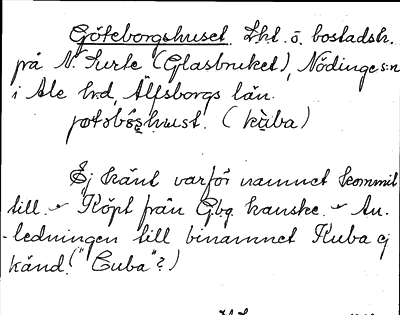 Göteborgshuset. Lht. o. bostadsh.
på N. Surte (Glasbruket), Nödinge s:n
i Ale hrd, Älfsborgs län.
(kùba)
Ej känt varför namnet kommit
till. - Köpt från Gbg kanske. - An-
ledningen till binamnet Kuba ej
känd. ("Cuba"?)